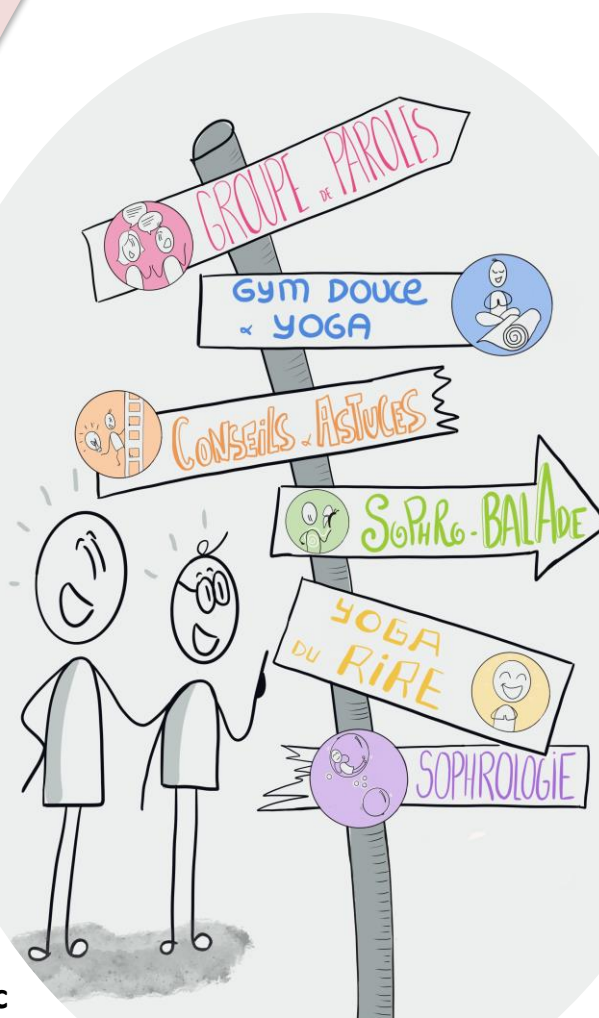 GROUPE DE PAROLES
GYM DOUCE
& YOGA
CONSEILS & ASTUCES
SOPHRO-BALADE
YOGA
DU RIRE
SOPHROLOGIE
C